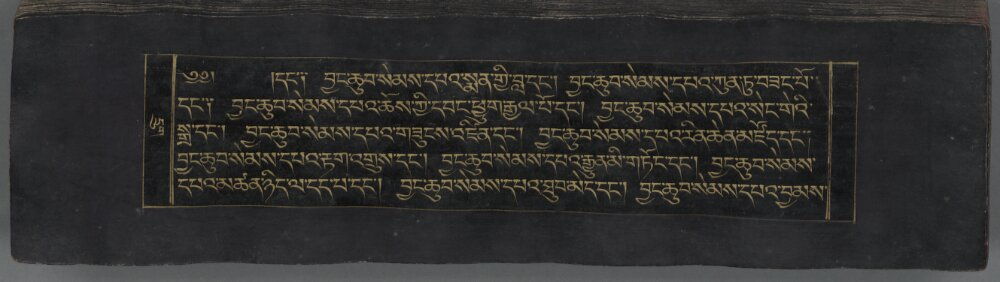 ༄༅། །དང༌། བྱང་ཆུབ་སེམས་དཔའ་སྨན་གྱི་བླ་དང༌། བྱང་ཆུབ་སེམས་དཔའ་ཀུན་ཏུ་བཟང་པོ་
དང༌། བྱང་ཆུབ་སེམས་དཔའ་ཆོས་ཀྱི་དབང་ཕྱུག་རྒྱལ་པོ་དང༌། བྱང་ཆུབ་སེམས་དཔའ་སེང་གེའི་
སྒྲ་དང༌། བྱང་ཆུབ་སེམས་དཔའ་གཟུངས་འཛིན་དང༌། བྱང་ཆུབ་སེམས་དཔའ་རིན་ཆེན་མཛོད་དང༌།
བྱང་ཆུབ་སེམས་དཔའ་རྟག་འགྲུས་དང༌། བྱང་ཆུབ་སེམས་དཔའ་རྒྱུན་མི་གཏོང་དང༌། བྱང་ཆུབ་སེམས་
དཔའ་མཚན་ཉིད་ལ་དང་བ་དང༌། བྱང་ཆུབ་སེམས་དཔའ་ཐུབ་མེད་དང༌། བྱང་ཆུབ་སེམས་དཔའ་བྱམས་